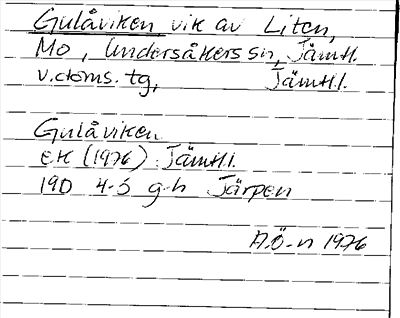 Gulåviken vik av Liten,
Mo, Undersåkers sn, Jämtl.
v.doms. tg, Jämtl.l.
Gulåviken
EK (1976) Jämtl.l.
19D 4-5 g-h Järpen
A.Ö-n 1976